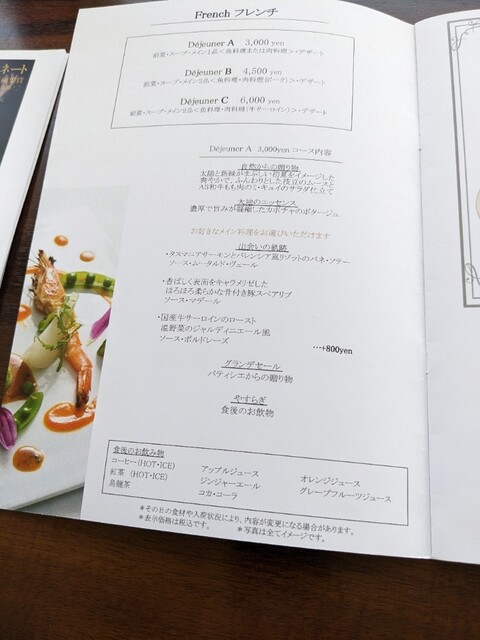 French フレンチ
Déjeuner A 3,000 yen
前菜・スープ・メイン1品＜魚料理または肉料理＞・デザート
Déjeuner B 4,500 yen
前菜・スープ・メイン2品＜魚料理・肉料理(ポーク)＞・デザート
Déjeuner C 6,000 yen
前菜・スープ・メイン2品＜魚料理・肉料理(牛サーロイン)＞・デザート
Déjeuner A 3,000yen コース内容
自然からの贈り物
太陽と新緑がまぶしい初夏をイメージした
爽やかで、ふんわりとした枝豆のムースと
A5和牛もも肉のミ・キュイのサラダ仕立て
大地のエッセンス
濃厚で旨みが凝縮したカボチャのポタージュ
お好きなメイン料理をお選びいただけます
出会いの軌跡
・タスマニアサーモンとバレンシア風リゾットのパネ・ソテー
ソース・ムータルド・ヴェール
・香ばしく表面をキャラメリゼした
ほろほろ柔らかな骨付き豚スペアリブ
ソース・マデール
・国産牛サーロインのロースト
温野菜のジャルディニエール風
ソース・ボルドレーズ
…+800yen
グランデセール
パティシエからの贈り物
やすらぎ
食後のお飲物
食後のお飲み物
コーヒー(HOT・ICE) アップルジュース オレンジジュース
紅茶 (HOT・ICE) ジンジャーエール グレープフルーツジュース
烏龍茶 コカ・コーラ
＊その日の食材や入荷状況により、内容が変更になる場合があります。
＊表示価格は税込です。 ＊写真は全てイメージです。
ネート